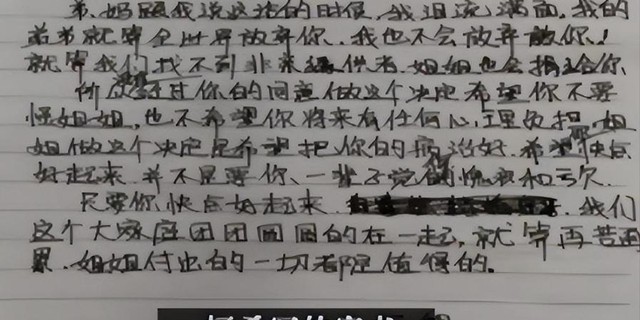 弟、妈跟我说这话的时候、我泪流满面、我的
弟弟就算全世界放弃你、我也不会放弃你!
就算我们找不到非亲缘供者、姐姐也会捐给你
所以没经过你的同意做这个决定希望你不要
怪姐姐、也不希望你将来有任何心理负担、姐
姐做这个决定是希望把你的病治好、希望你快点
好起来、并不是要你、一辈子觉得愧疚和亏欠
只要你快点好起来、我们
这个大家庭团团圆圆的在一起、就算再苦再
累、姐姐付出的一切都是值得的。